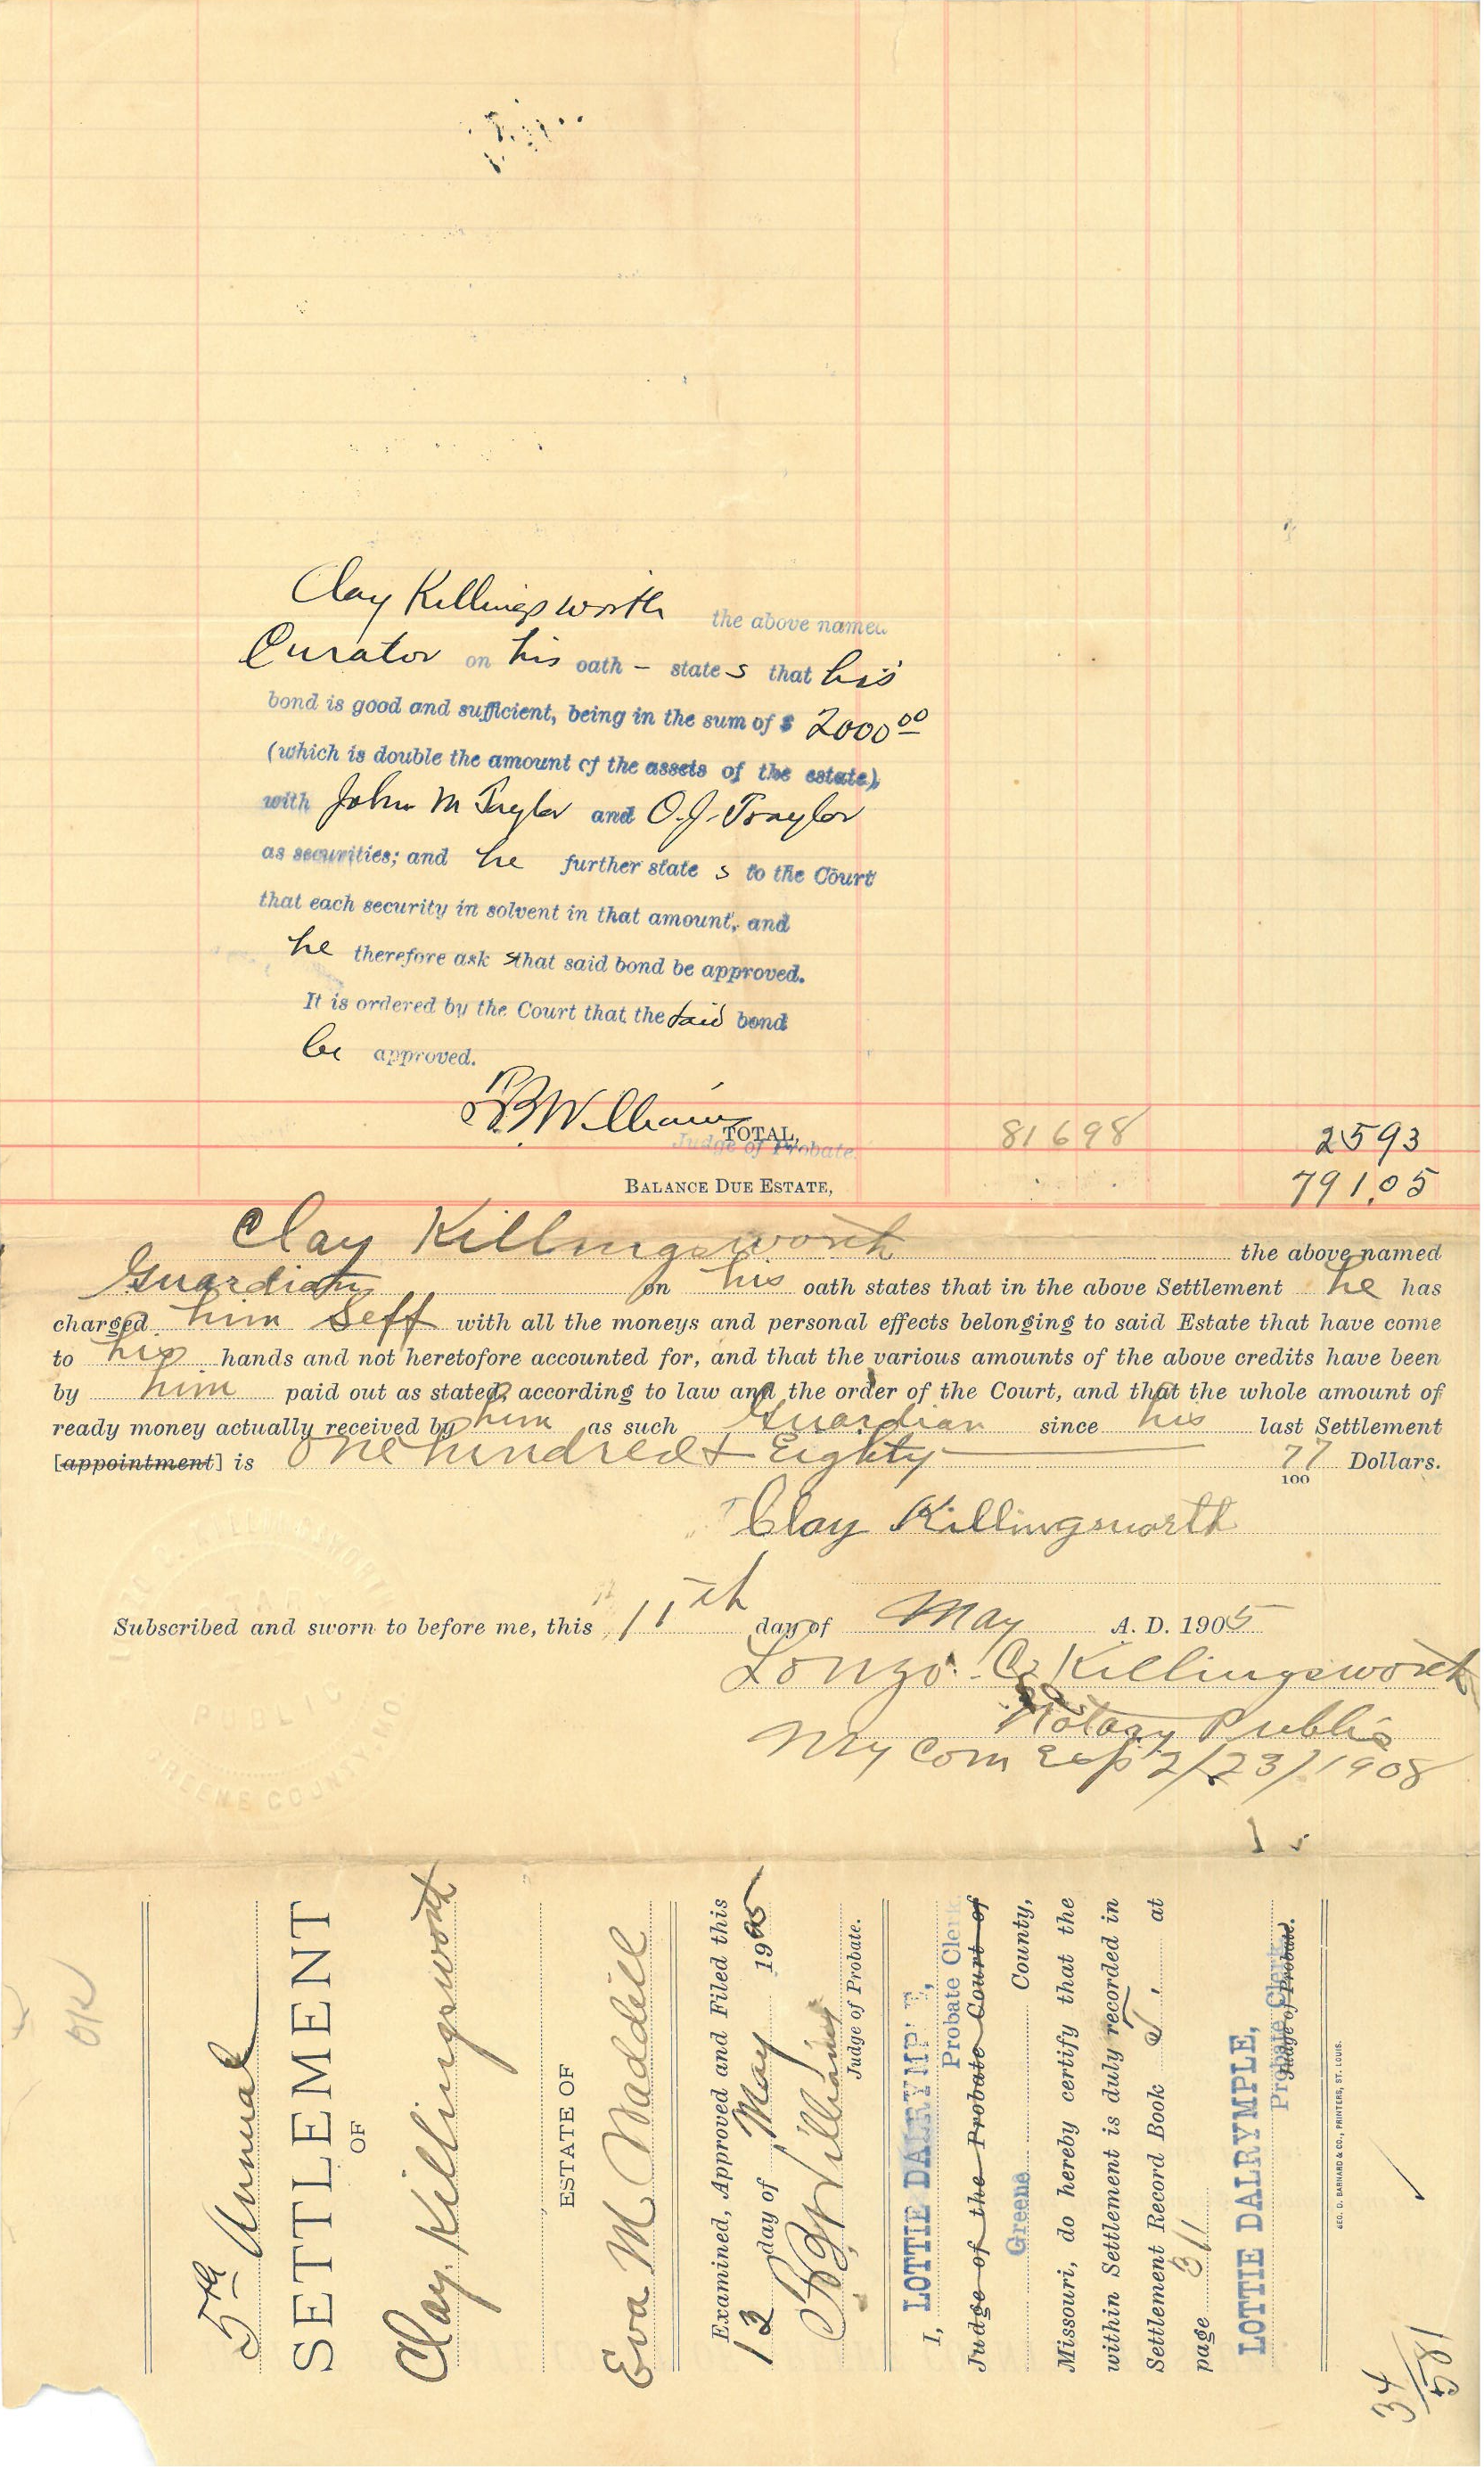 Clay Killingsworth the above named
Curator on his oath – state s that his
bond is good and sufficient, being in the sum of $ 2000 00
(which is double the amount of the assets of the estate),
with John M Taylor and O. J. Traylor
as securities; and he further state s to the Court
that each security in solvent in that amount, and
he therefore ask s that said bond be approved.
It is ordered by the Court that the said bond
be approved.
Williams
Judge of Probate.
TOTAL, 81698 2593
BALANCE DUE ESTATE, 791.05
Clay Killingsworth the above named
Guardian on his oath states that in the above Settlement he has
charged him Self with all the moneys and personal effects belonging to said Estate that have come
to his hands and not heretofore accounted for, and that the various amounts of the above credits have been
by him paid out as stated, according to law and the order of the Court, and that the whole amount of
ready money actually received by him as such Guardian since his last Settlement
[appointment] is One hundred + Eighty 77/100 Dollars.
Clay Killingsworth
Subscribed and sworn to before me, this 11th day of May A. D. 1905
Lonzo C. Killingsworth
Notary Public
My Com Exp 2/23/1908
PUBLIC
GREENE COUNTY, MO.
OK
5th Annual
SETTLEMENT
OF
Clay Killingsworth
ESTATE OF
Eva M Waddill
Examined, Approved and Filed this
12 day of May 1905
Williams
Judge of Probate.
I, LOTTIE DALRYMPLE,
Probate Clerk
Judge of the Probate Court of
Greene County,
Missouri, do hereby certify that the
within Settlement is duly recorded in
Settlement Record Book at
page 311
LOTTIE DALRYMPLE,
Probate Clerk
Judge of Probate.
GEO. D. BARNARD & CO., PRINTERS, ST. LOUIS.
34/581